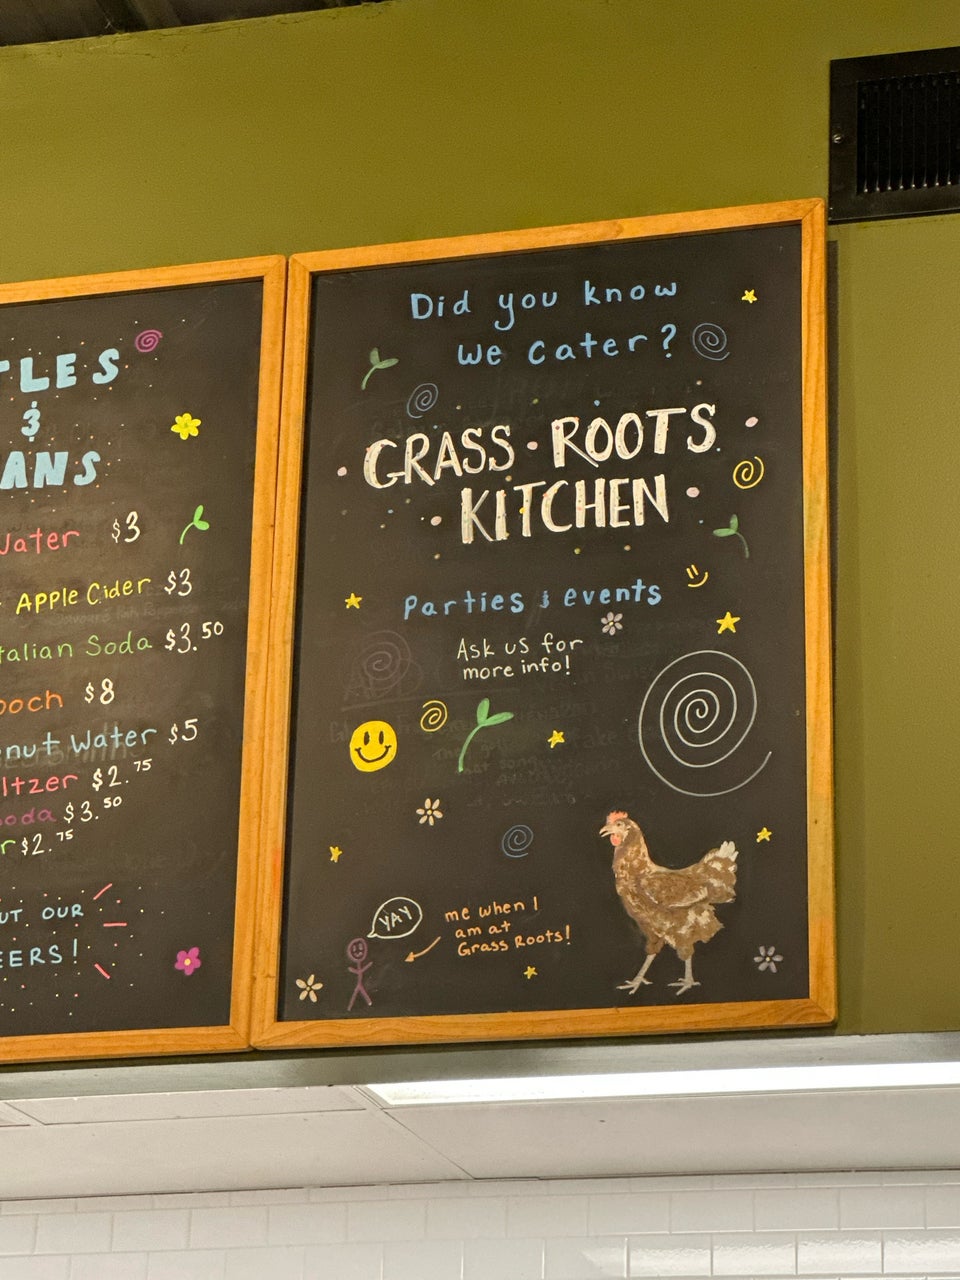 & 
Water $3
Apple Cider $3
Italian Soda $3.50
$8
Water $5
$2.75
Soda $3.50
$2.75
OUR
Did you know
we cater?
GRASS · ROOTS
KITCHEN
Parties & events
Ask us for
more info!
YAY
me when I
am at
Grass Roots!